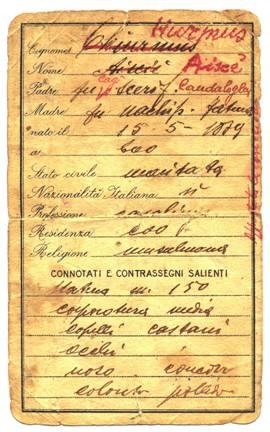 Hurmus
Cognome
Nome Aiscè
Padre fu Scerif Candaloglu
Madre fu Nachip. Fatma
nato il 15-5-1879
a Coo
Stato civile maritata
Nazionalità Italiana sì
Professione casalinga
Residenza Coo
Religione musulmana
CONNOTATI E CONTRASSEGNI SALIENTI
Statura m. 150
corporatura media
capelli castani
occhi
naso
colorito pallido